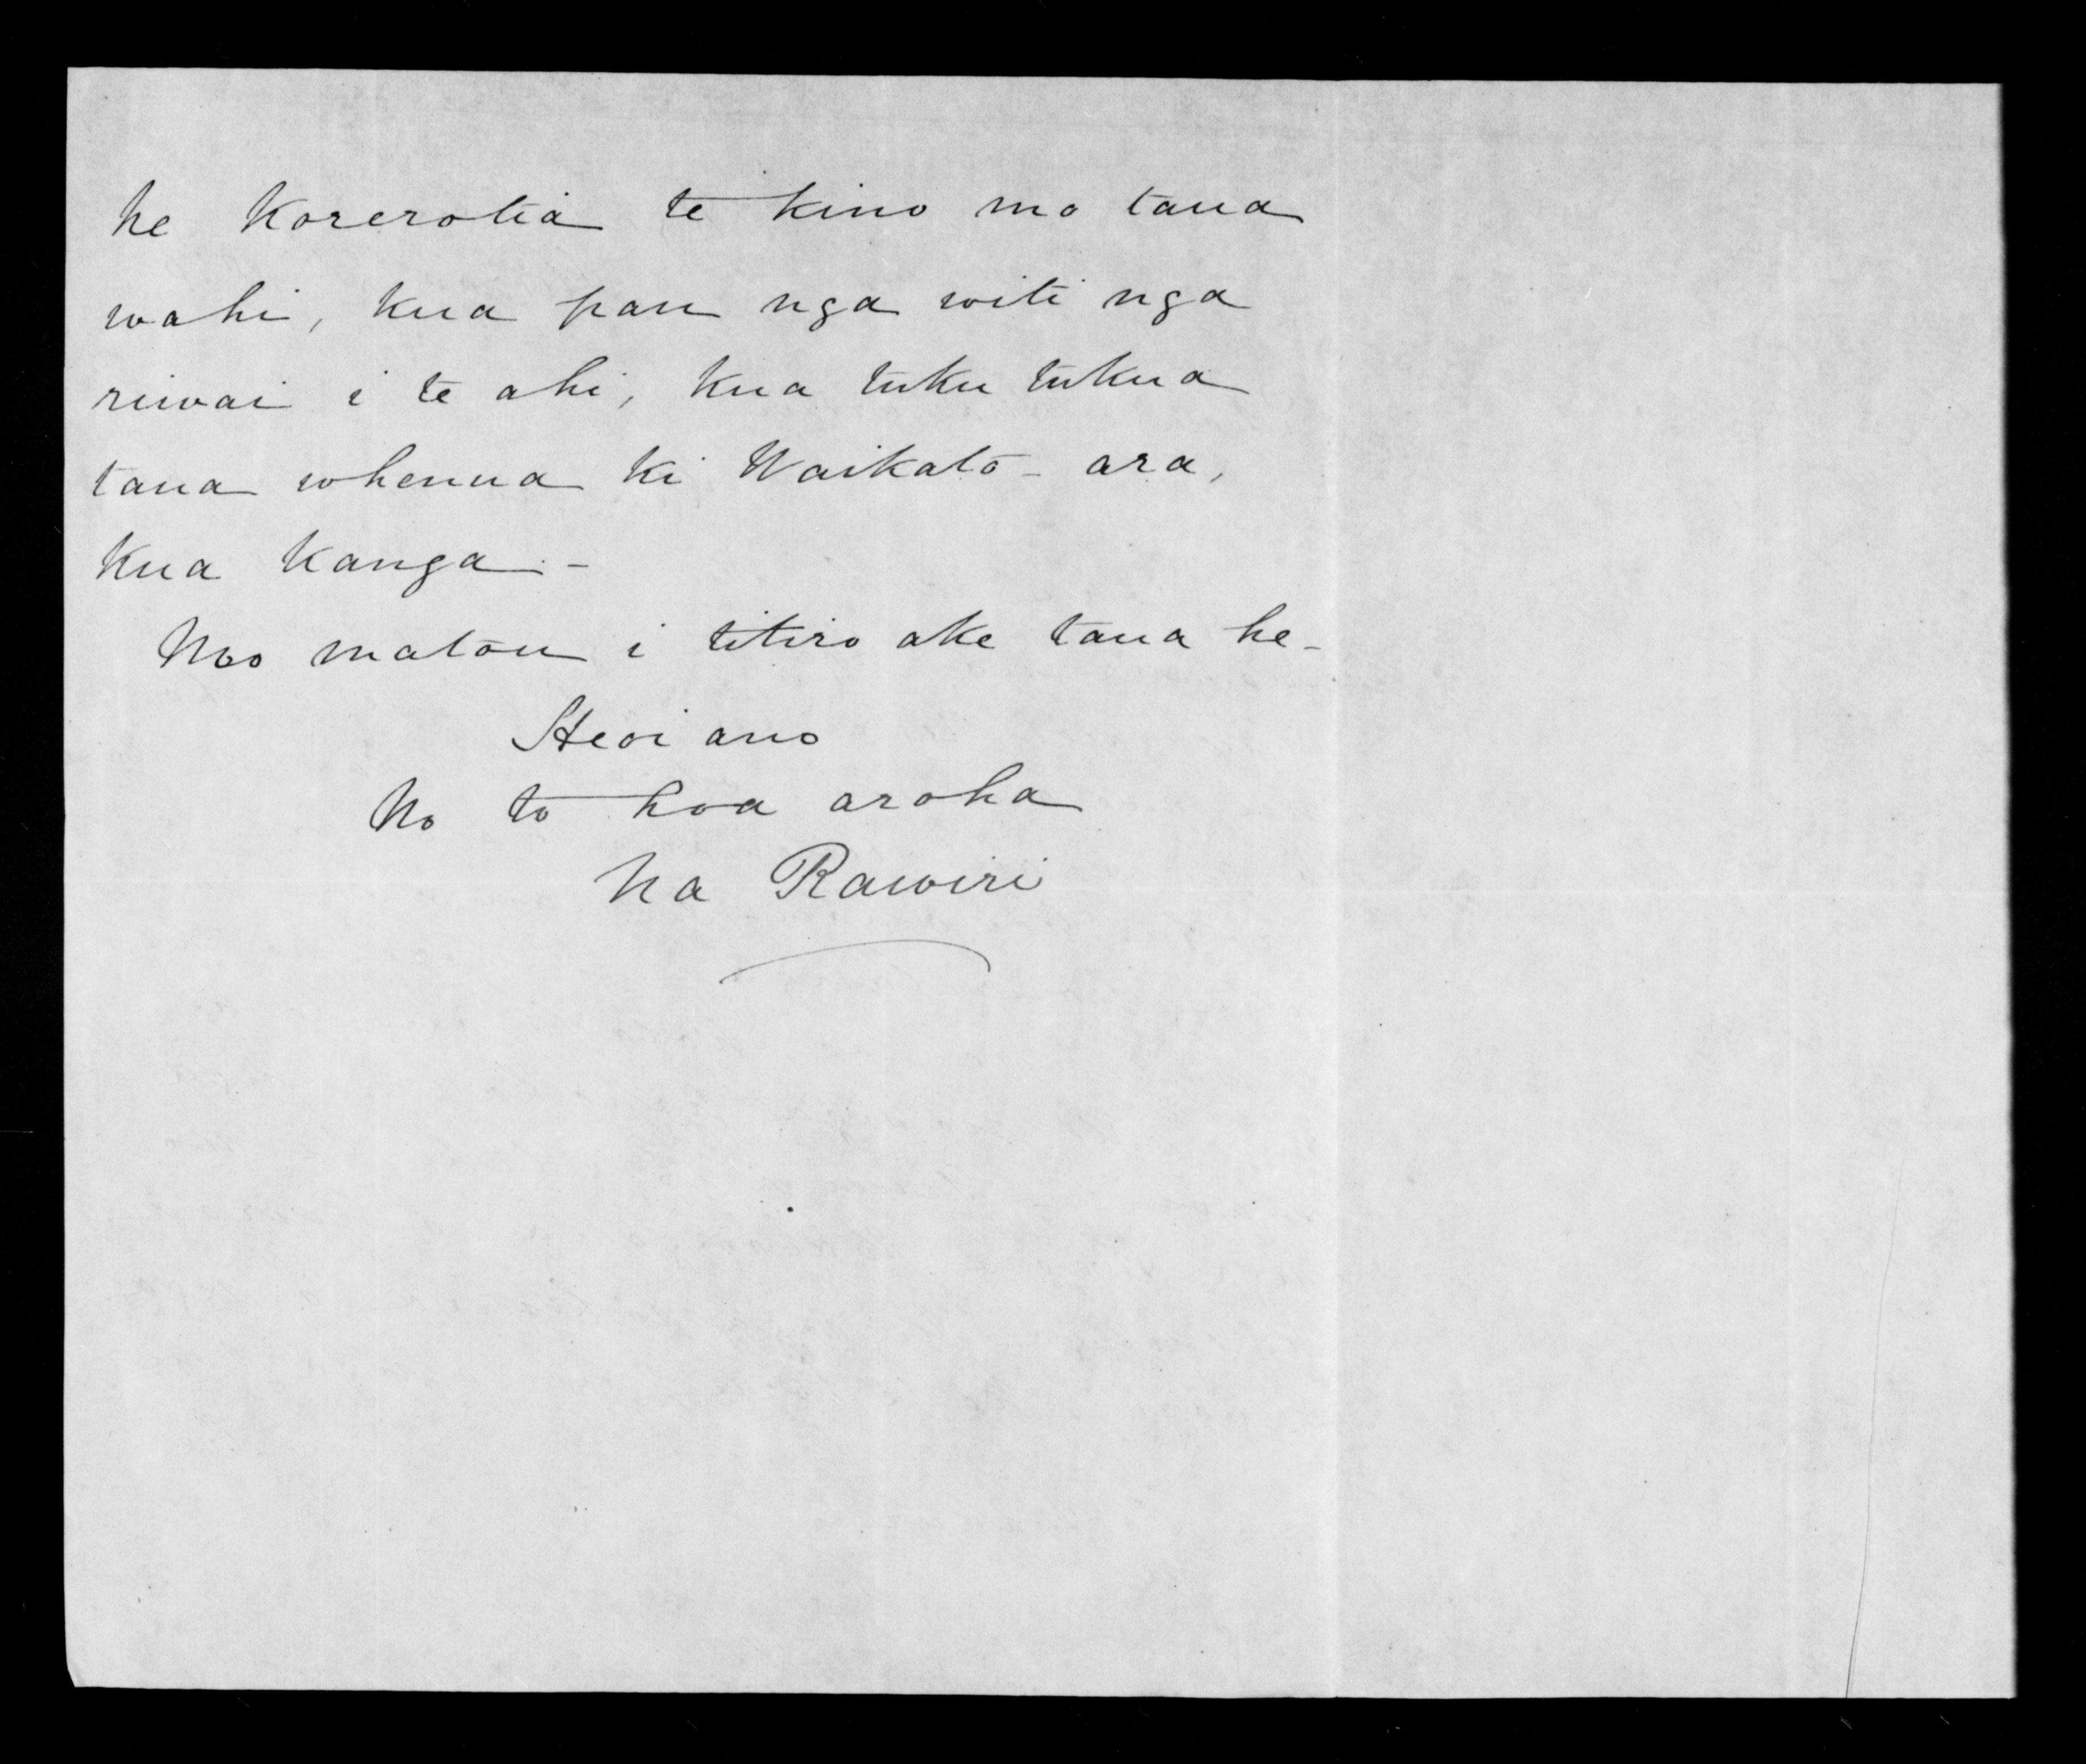 he korerotia te kino mo taua
wahi, kua pau nga witi nga
riwai i te ahi, kua tuku tukua
taua whenua ki Waikato - ara,
kua kanga. -
Mo matou i titiro ake taua he -
Heoi ano
No to hoa aroha
Na Rawiri